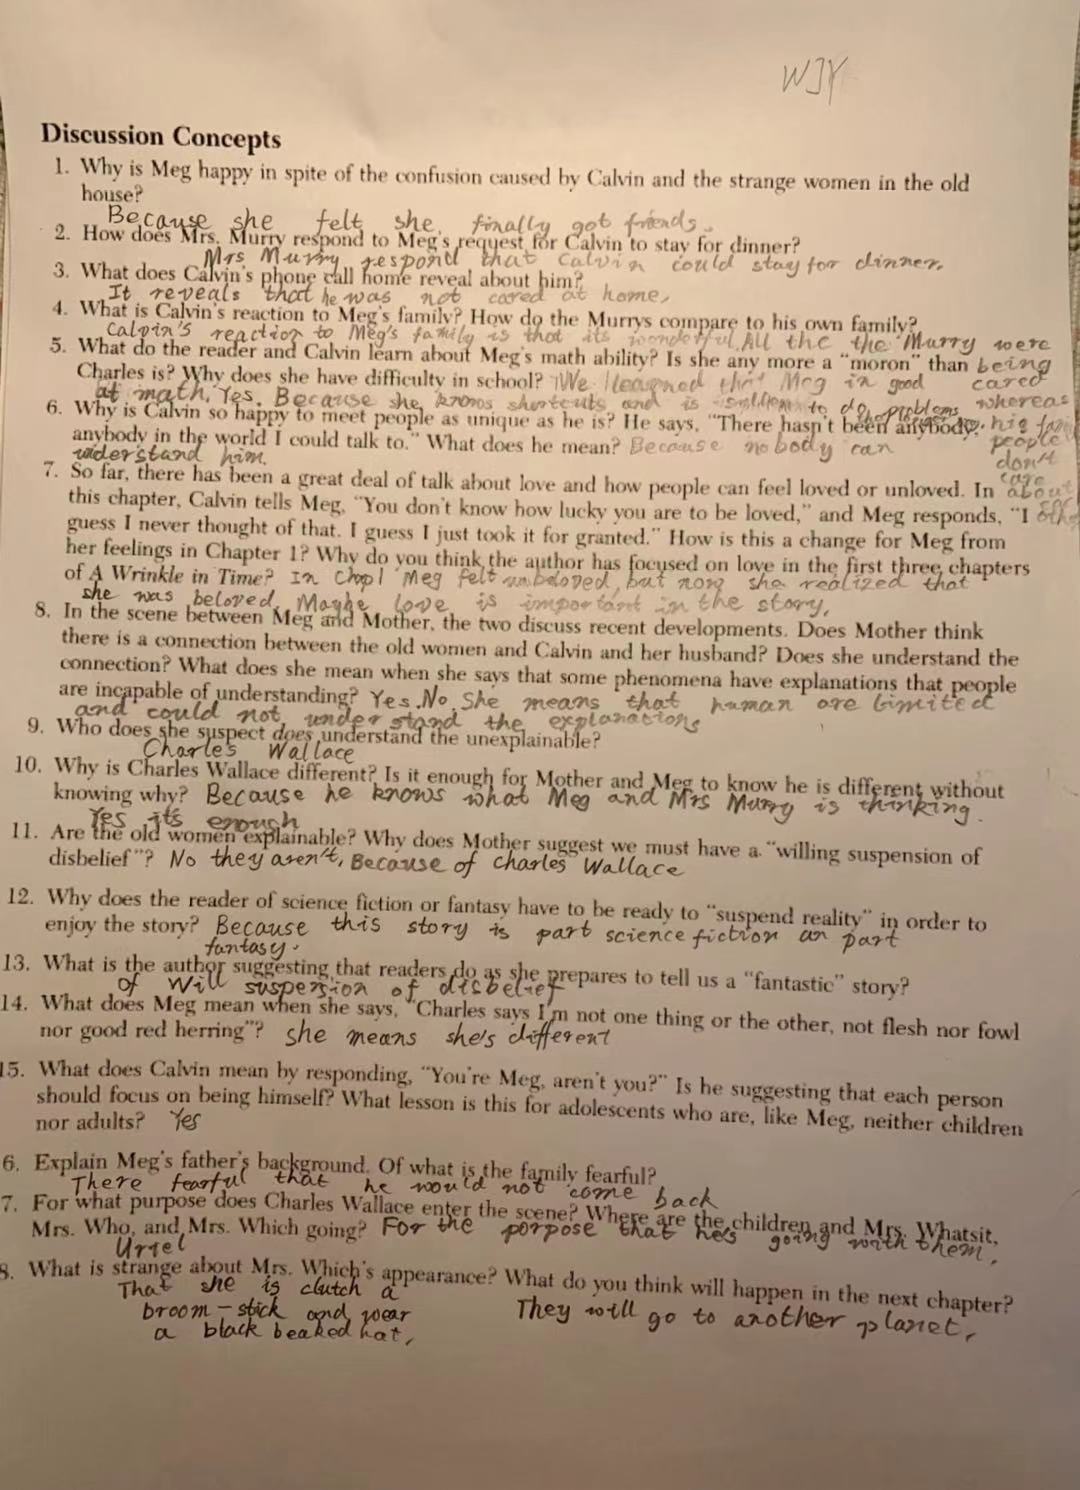 WJY
Discussion Concepts
1. Why is Meg happy in spite of the confusion caused by Calvin and the strange women in the old
house?
Because she felt she finally got friends.
2. How does Mrs. Murry respond to Meg's request for Calvin to stay for dinner?
Mrs Murry respond that Calvin could stay for dinner.
3. What does Calvin's phone call home reveal about him?
It reveals that he was not cared at home,
4. What is Calvin's reaction to Meg's family? How do the Murrys compare to his own family?
Calvin's reaction to Meg's family is that its wonderful, All the the Murry were
5. What do the reader and Calvin learn about Meg's math ability? Is she any more a "moron" than being
Charles is? Why does she have difficulty in school? We learned that Meg in good cared
at math, Yes. Because she knows shortcuts and is to do problems whereas
6. Why is Calvin so happy to meet people as unique as he is? He says, "There hasn't been anybody, his fam
anybody in the world I could talk to." What does he mean? Because nobody can people
understand him. don't
7. So far, there has been a great deal of talk about love and how people can feel loved or unloved. In care about
this chapter, Calvin tells Meg, "You don't know how lucky you are to be loved," and Meg responds, "I
guess I never thought of that. I guess I just took it for granted." How is this a change for Meg from
her feelings in Chapter 1? Why do you think the author has focused on love in the first three chapters
of A Wrinkle in Time? In Chap1 Meg felt unbeloved, but now she realized that
she was beloved, Maybe love is important in the story,
8. In the scene between Meg and Mother, the two discuss recent developments. Does Mother think
there is a connection between the old women and Calvin and her husband? Does she understand the
connection? What does she mean when she says that some phenomena have explanations that people
are incapable of understanding? Yes. No. She means that human are limited
and could not understand the explanations
9. Who does she suspect does understand the unexplainable?
Charles Wallace
10. Why is Charles Wallace different? Is it enough for Mother and Meg to know he is different without
knowing why? Because he knows what Meg and Mrs Murry is thinking.
Yes its enough
11. Are the old women explainable? Why does Mother suggest we must have a "willing suspension of
disbelief"? No they aren't, Because of Charles Wallace
12. Why does the reader of science fiction or fantasy have to be ready to "suspend reality" in order to
enjoy the story? Because this story is part science fiction an part
fantasy.
13. What is the author suggesting that readers do as she prepares to tell us a "fantastic" story?
of Will suspension of disbelief
14. What does Meg mean when she says, "Charles says I'm not one thing or the other, not flesh nor fowl
nor good red herring"? she means she's different
15. What does Calvin mean by responding, "You're Meg, aren't you?" Is he suggesting that each person
should focus on being himself? What lesson is this for adolescents who are, like Meg, neither children
nor adults? Yes
6. Explain Meg's father's background. Of what is the family fearful?
There fearful that he would not come back
7. For what purpose does Charles Wallace enter the scene? Where are the children and Mrs. Whatsit,
Mrs. Who, and Mrs. Which going? For the porpose that he's going with them,
Uriel
8. What is strange about Mrs. Which's appearance? What do you think will happen in the next chapter?
That she is clutch a
broom-stick and wear They will go to another planet,
a black beaked hat,